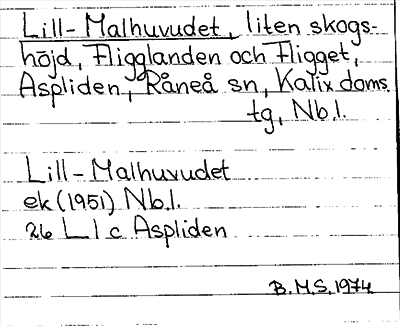 Lill-Malhuvudet, liten skogs-
höjd, Fligglanden och Fligget,
Aspliden, Råneå sn, Kalix doms
tg, Nb.l.
Lill-Malhuvudet
ek (1951) Nb.l.
26 L 1 c Aspliden
B.M.S. 1974